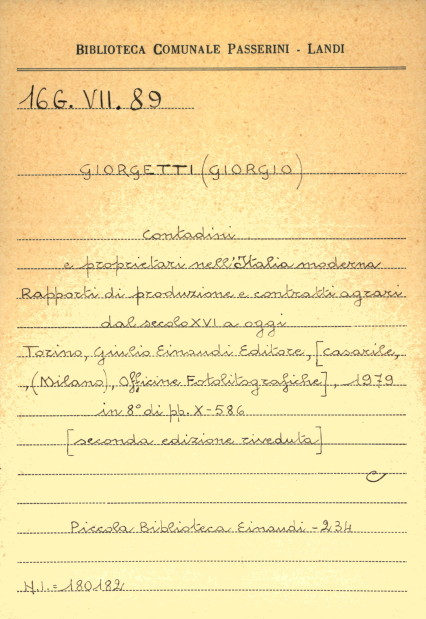 BIBLIOTECA COMUNALE PASSERINI - LANDI
16G. VII. 89
GIORGETTI (GIORGIO)
Contadini
e proprietari nell'Italia moderna
Rapporti di produzione e contratti agrari
dal secolo XVI a oggi
Torino, Giulio Einaudi Editore, [Casarile,
,(Milano), Officine Fotolitografiche], 1979
in 8° di pp. X-586
[seconda edizione riveduta]
C
Piccola Biblioteca Einaudi - 234
N.I. = 180182